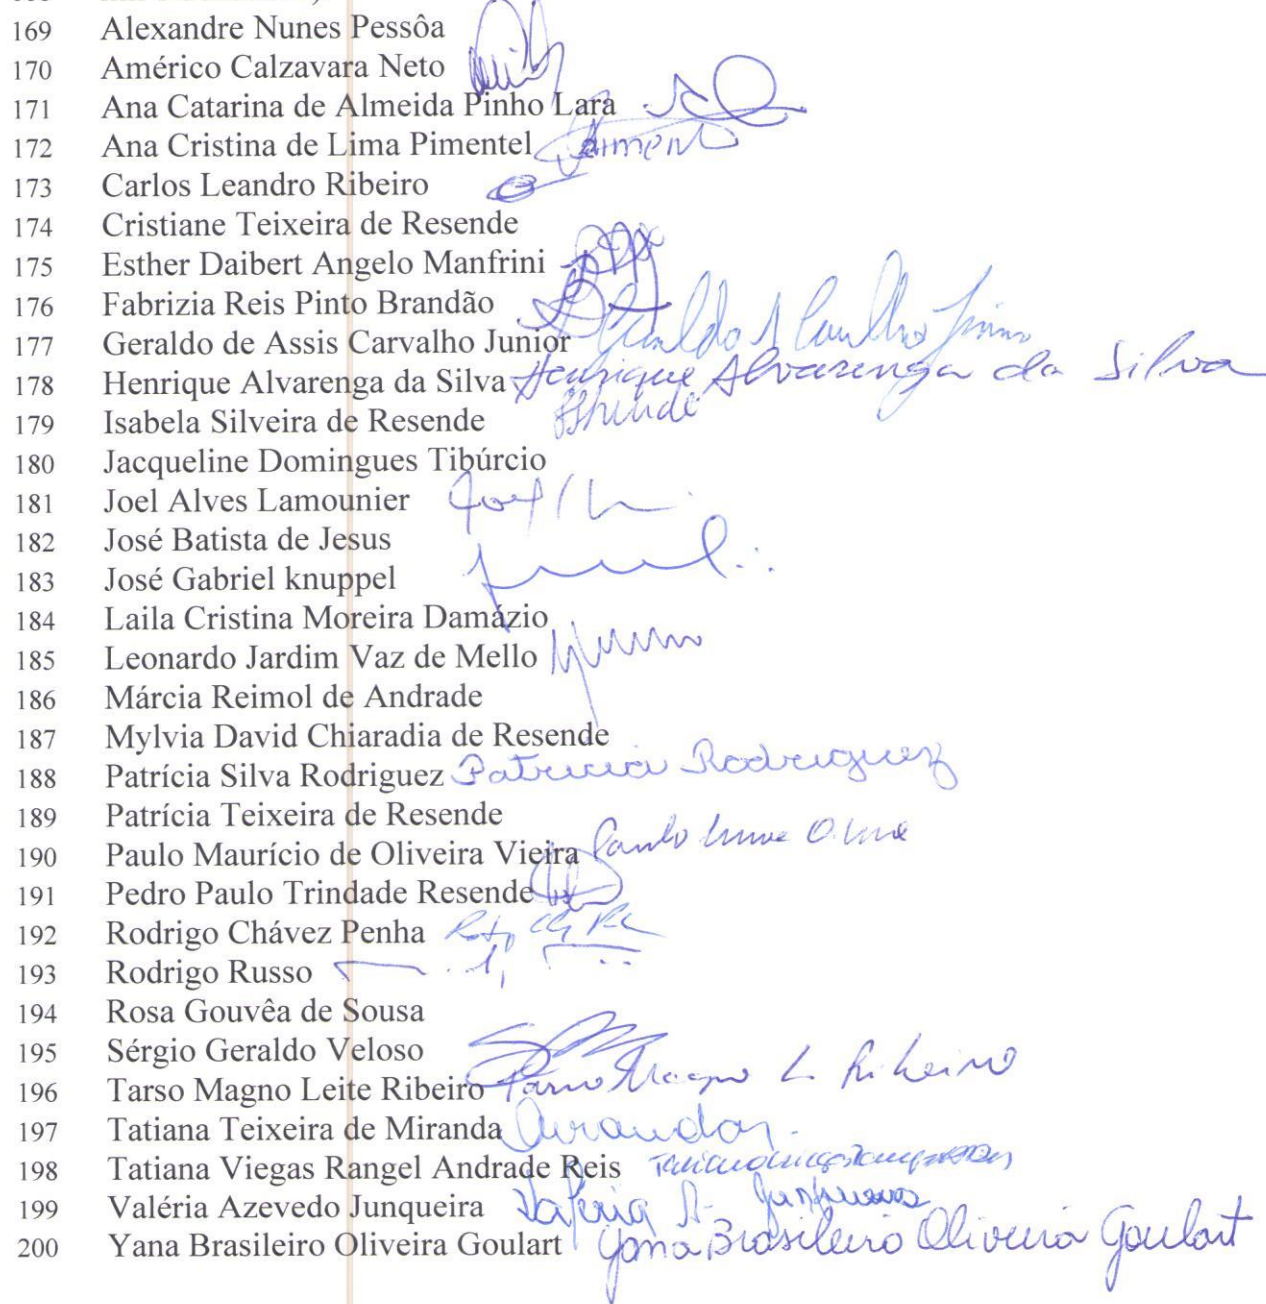 169 Alexandre Nunes Pessôa
170 Américo Calzavara Neto
171 Ana Catarina de Almeida Pinho Lara
172 Ana Cristina de Lima Pimentel
173 Carlos Leandro Ribeiro
174 Cristiane Teixeira de Resende
175 Esther Daibert Angelo Manfrini
176 Fabrizia Reis Pinto Brandão
177 Geraldo de Assis Carvalho Junior
178 Henrique Alvarenga da Silva Henrique Alvarenga da Silva
179 Isabela Silveira de Resende
180 Jacqueline Domingues Tibúrcio
181 Joel Alves Lamounier
182 José Batista de Jesus
183 José Gabriel knuppel
184 Laila Cristina Moreira Damázio
185 Leonardo Jardim Vaz de Mello
186 Márcia Reimol de Andrade
187 Mylvia David Chiaradia de Resende
188 Patrícia Silva Rodriguez Patricia Rodriguez
189 Patrícia Teixeira de Resende
190 Paulo Maurício de Oliveira Vieira
191 Pedro Paulo Trindade Resende
192 Rodrigo Chávez Penha
193 Rodrigo Russo
194 Rosa Gouvêa de Sousa
195 Sérgio Geraldo Veloso
196 Tarso Magno Leite Ribeiro Tarso Magno L. Ribeiro
197 Tatiana Teixeira de Miranda
198 Tatiana Viegas Rangel Andrade Reis
199 Valéria Azevedo Junqueira Valéria A. Junqueira
200 Yana Brasileiro Oliveira Goulart Yana Brasileiro Oliveira Goulart